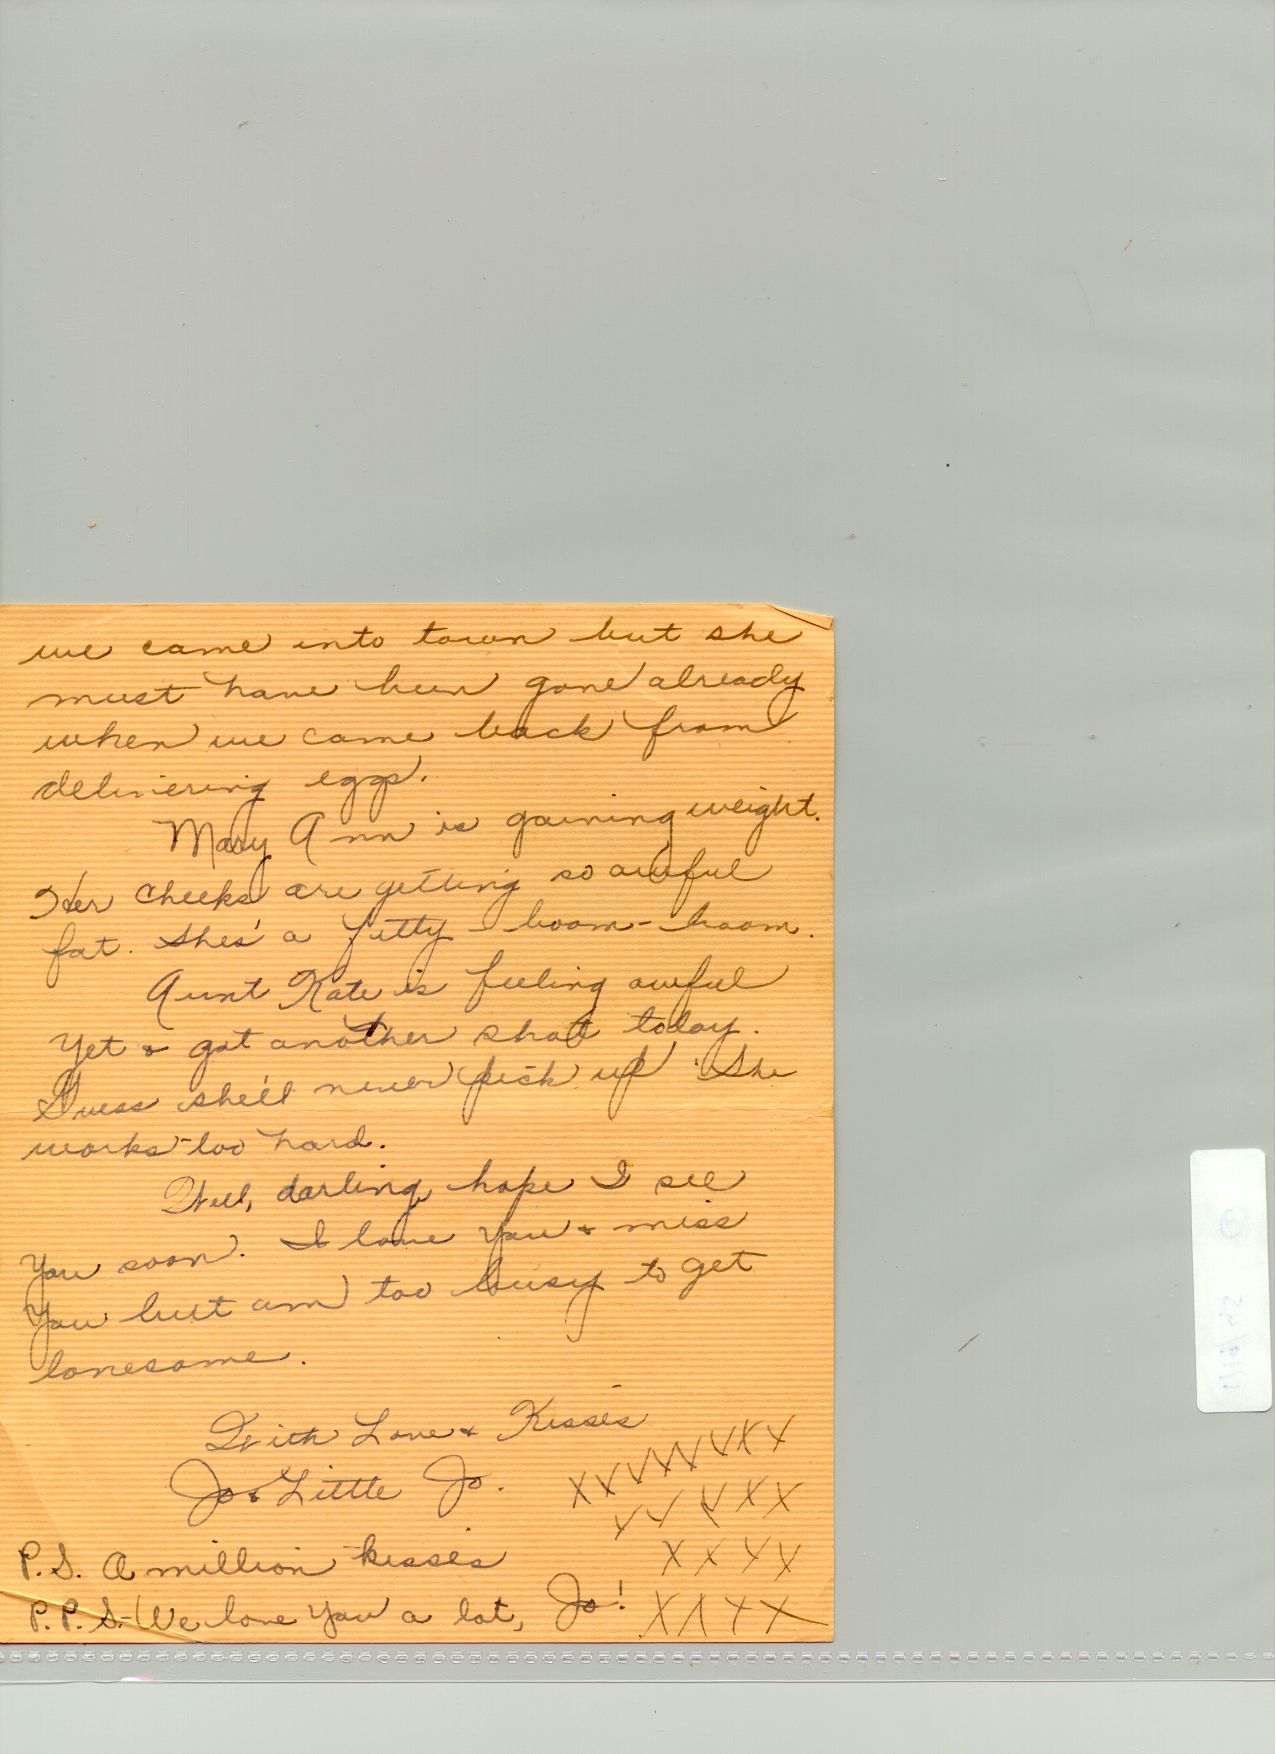 we came into town but she
must have been gone already
when we came back from
delivering eggs.
Mary Ann is gaining weight.
Her cheeks are getting so awful
fat. Shes' a fatty - boom-boom.
Aunt Kate is feeling awful
yet & got another shot today.
Guess she'll never pick up. She
works too hard.
Well, darling, hope I see
you soon. I love you & miss
you but am too busy to get
lonesome.
With Love & Kisses
Jo & Little Jo.
P.S. A million kisses
P.P.S. We love you a lot, Jo!